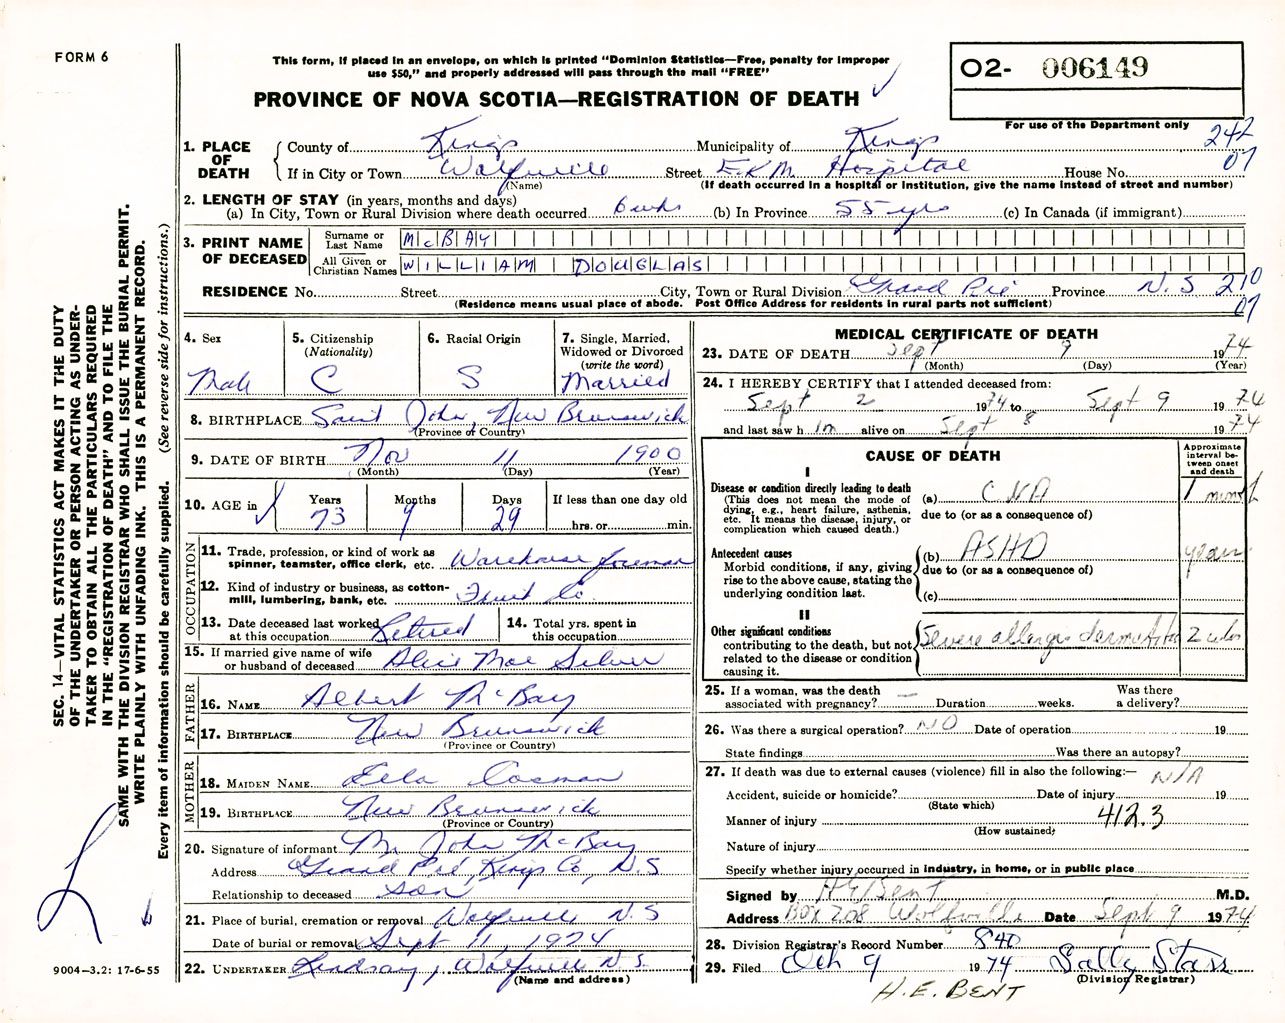 FORM 6
This form, if placed in an envelope, on which is printed “Dominion Statistics—Free, penalty for improper
use $50,” and properly addressed will pass through the mail “FREE”
PROVINCE OF NOVA SCOTIA—REGISTRATION OF DEATH
O2- 006149
For use of the Department only
242
07
1. PLACE OF DEATH
County of Kings Municipality of Kings
If in City or Town Wolfville Street E.K.M. Hospital House No.
(Name) (If death occurred in a hospital or institution, give the name instead of street and number)
2. LENGTH OF STAY (in years, months and days)
(a) In City, Town or Rural Division where death occurred 6 wks (b) In Province 55 yrs (c) In Canada (if immigrant)
3. PRINT NAME OF DECEASED
Surname or Last Name McBAY
All Given or Christian Names WILLIAM DOUGLAS
RESIDENCE No. Street City, Town or Rural Division Grand Pré Province N.S 210
07
(Residence means usual place of abode. Post Office Address for residents in rural parts not sufficient)
4. Sex
Male
5. Citizenship
(Nationality)
C
6. Racial Origin
S
7. Single, Married,
Widowed or Divorced
(write the word)
Married
8. BIRTHPLACE Saint John, New Brunswick
(Province or Country)
9. DATE OF BIRTH Nov 11 1900
(Month) (Day) (Year)
10. AGE in
Years Months Days If less than one day old
73 9 29 hrs. or min.
OCCUPATION
11. Trade, profession, or kind of work as
spinner, teamster, office clerk, etc. Warehouse foreman
12. Kind of industry or business, as cotton-
mill, lumbering, bank, etc. Fruit Co.
13. Date deceased last worked
at this occupation Retired
14. Total yrs. spent in
this occupation
15. If married give name of wife
or husband of deceased Alice Mae Silver
FATHER
16. NAME Albert McBay
17. BIRTHPLACE New Brunswick
(Province or Country)
MOTHER
18. MAIDEN NAME Ella Cosman
19. BIRTHPLACE New Brunswick
(Province or Country)
20. Signature of informant Mr John McBay
Address Grand Pré, Kings Co, N.S
Relationship to deceased son
21. Place of burial, cremation or removal Wolfville N.S
Date of burial or removal Sept 11, 1974
22. UNDERTAKER Lindsay, Wolfville N.S.
(Name and address)
MEDICAL CERTIFICATE OF DEATH
23. DATE OF DEATH Sept 9 1974
(Month) (Day) (Year)
24. I HEREBY CERTIFY that I attended deceased from:
Sept 2 1974 to Sept 9 1974
and last saw h im alive on Sept 8 1974
CAUSE OF DEATH
Approximate
interval be-
tween onset
and death
I
Disease or condition directly leading to death
(This does not mean the mode of
dying, e.g., heart failure, asthenia,
etc. It means the disease, injury, or
complication which caused death.)
(a) CVA 1 minute
due to (or as a consequence of)
Antecedent causes
Morbid conditions, if any, giving
rise to the above cause, stating the
underlying condition last.
(b) ASHD years
due to (or as a consequence of)
(c)
II
Other significant conditions
contributing to the death, but not
related to the disease or condition
causing it.
Severe allergic dermatitis 2 wks
25. If a woman, was the death
associated with pregnancy? — Duration weeks. Was there
a delivery?
26. Was there a surgical operation? NO Date of operation 19
State findings Was there an autopsy?
27. If death was due to external causes (violence) fill in also the following:— N/A
Accident, suicide or homicide? Date of injury 19
(State which)
Manner of injury 412.3
(How sustained)
Nature of injury
Specify whether injury occurred in industry, in home, or in public place
Signed by H E Bent M.D.
Address Box 208 Wolfville Date Sept 9 1974
28. Division Registrar's Record Number 840
29. Filed Oct 9 1974 Sally Starr
(Division Registrar)
H.E. BENT
SEC. 14—VITAL STATISTICS ACT MAKES IT THE DUTY
OF THE UNDERTAKER OR PERSON ACTING AS UNDER-
TAKER TO OBTAIN ALL THE PARTICULARS REQUIRED
IN THE “REGISTRATION OF DEATH” AND TO FILE THE
SAME WITH THE DIVISION REGISTRAR WHO SHALL ISSUE THE BURIAL PERMIT.
WRITE PLAINLY WITH UNFADING INK. THIS IS A PERMANENT RECORD.
Every item of information should be carefully supplied. (See reverse side for instructions.)
9004-3.2: 17-6-55